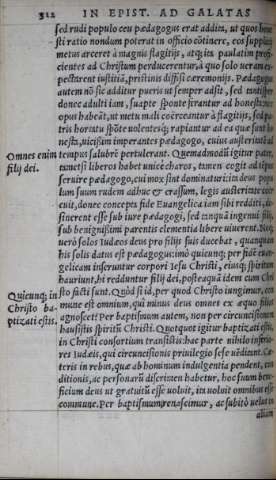 312 IN EPIST. AD GALATAS
sed rudi populo ceu pædagogus erat addita, ut quos
sti ratio nondum poterat in officio cõtinere, eos supplicij
metus arceret à magnis flagitijs, atq; ita paulatim profi-
cientes ad Christum perducerentur, à quo solo ueram ex-
pectarent iustitiã, pristinis diffisi cæremonijs. Pædagogus
autem nõ sic additur pueris ut semper adsit, sed tantisper
donec adulti iam, suapte sponte ferantur ad honesta: nec
opus habeãt, ut metu mali coërceantur à flagitijs, sed pa-
tris hortatu spõte uolentesq́; rapiantur ad ea quæ sunt ho
nesta, uicißim imperantes pædagogo, cuius austeritatẽ ad
Omnes enim tempus salubrẽ pertulerant. Quemadmodũ igitur pater,
filij dei. tametsi liberos habet unicè charos, tamen cogit ad tẽpus
seruire pædagogo, cui mox sint dominaturi: ita deus popu
lum suum rudem adhuc & crassum, legis austeritate coër
cuit, donec concepta fide Euangelica iam sibi redditi, de-
sinerent esse sub iure pædagogi, sed tanquã ingenui filij,
sub benignißimi parentis clementia libere uiuerent. Neq;
uerò solos Iudæos deus pro filijs suis ducebat, quanquam
his solis datus est pædagogus: imò quicunq; per fidẽ euan-
gelicam inseruntur corpori Iesu Christi, eiusq; spiritum
hauriunt, hi redduntur filij dei, posteaquã idem cum Chri
Quicunq; in sto facti sunt. Quòd si id, per quod Christo iungimur, com
Christo ba- mune est omnium, quî minus deus omnes ex æquo filios
ptizati estis. agnoscet? Per baptismum autem, non per circuncisionem
hausistis spiritũ Christi. Quotquot igitur baptizati estis,
in Christi consortium transistis: hac parte nihilo inferio-
res Iudæis, qui circuncisionis priuilegio sese uẽditant. Cæ-
teris in rebus, quæ ab hominum indulgentia pendent, con
ditionis, ac personarũ discrimen habetur, hoc suum bene-
ficium deus ut gratuitũ esse uoluit, ita uoluit omnibus esse
commune. Per baptismum renascimur, ac subitò uelut in
alium